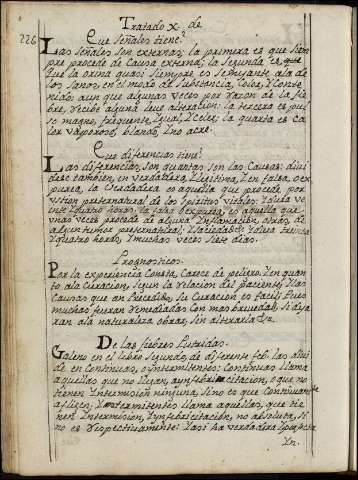 Tratado X. de
226
Que Señales tiene?
Las Señales Son externas; la primera es que Siem
pre procede de Causa externa; la Segunda es, que
que la orina quasi Siempre es Semejante ala de
los Sanos, en el modo de Substancia, Color, y Conte
nidos, aun que algunas Veces por razon de la fie
bre, recive alguna leve alteracion: la tercera es pul
so magno, frequente, Igual, y Celer; la quarta es ca
lor Vaporoso, blando, Y no acre.
Que diferencias tiene?
Las diferencias, Son quantas Son las Causas: divi
dese tambien, en Verdadera, y legitima, y en falsa, ex
purea, la Verdadera es aquella que procede por
Ustion preternatural de los Spiritus vitales; y dura ve
inte y quatro horas, la falsa, Expurea, es aquella que
unas veces procede de alguna Inflamacion, otras, de
algun humor preternatural; y dura treinta
y quatro horas, y muchas veces Siete dias.
Prognosticos.
Por la experiencia Consta, Carece de peligro. y en quan
to ala Curacion, Segun la relacion del paciente, y las
Causas que an precedido, Su Curacion es facil; Pues
muchos fueran remediados Con mas brevedad, Si deja
ran ala naturaleza obrar, Sin alterarla &.
De las fiebres Putridas.
Galeno en el libro Segundo, de diferente feb. las divi
de en Continuas, e yntermitentes: Continuas llama
aquellas que no llegan, a ynfebricitacion, o que no
tienen Intermision ninguna, Sino es que Continuamente
afligen; Yntermitentes llama aquellas, que tie
nen Intermision, Ynfebricitacion, no absoluta, Si
no es respectivamente: Y asi ha verdadera y perfecta
Yn.